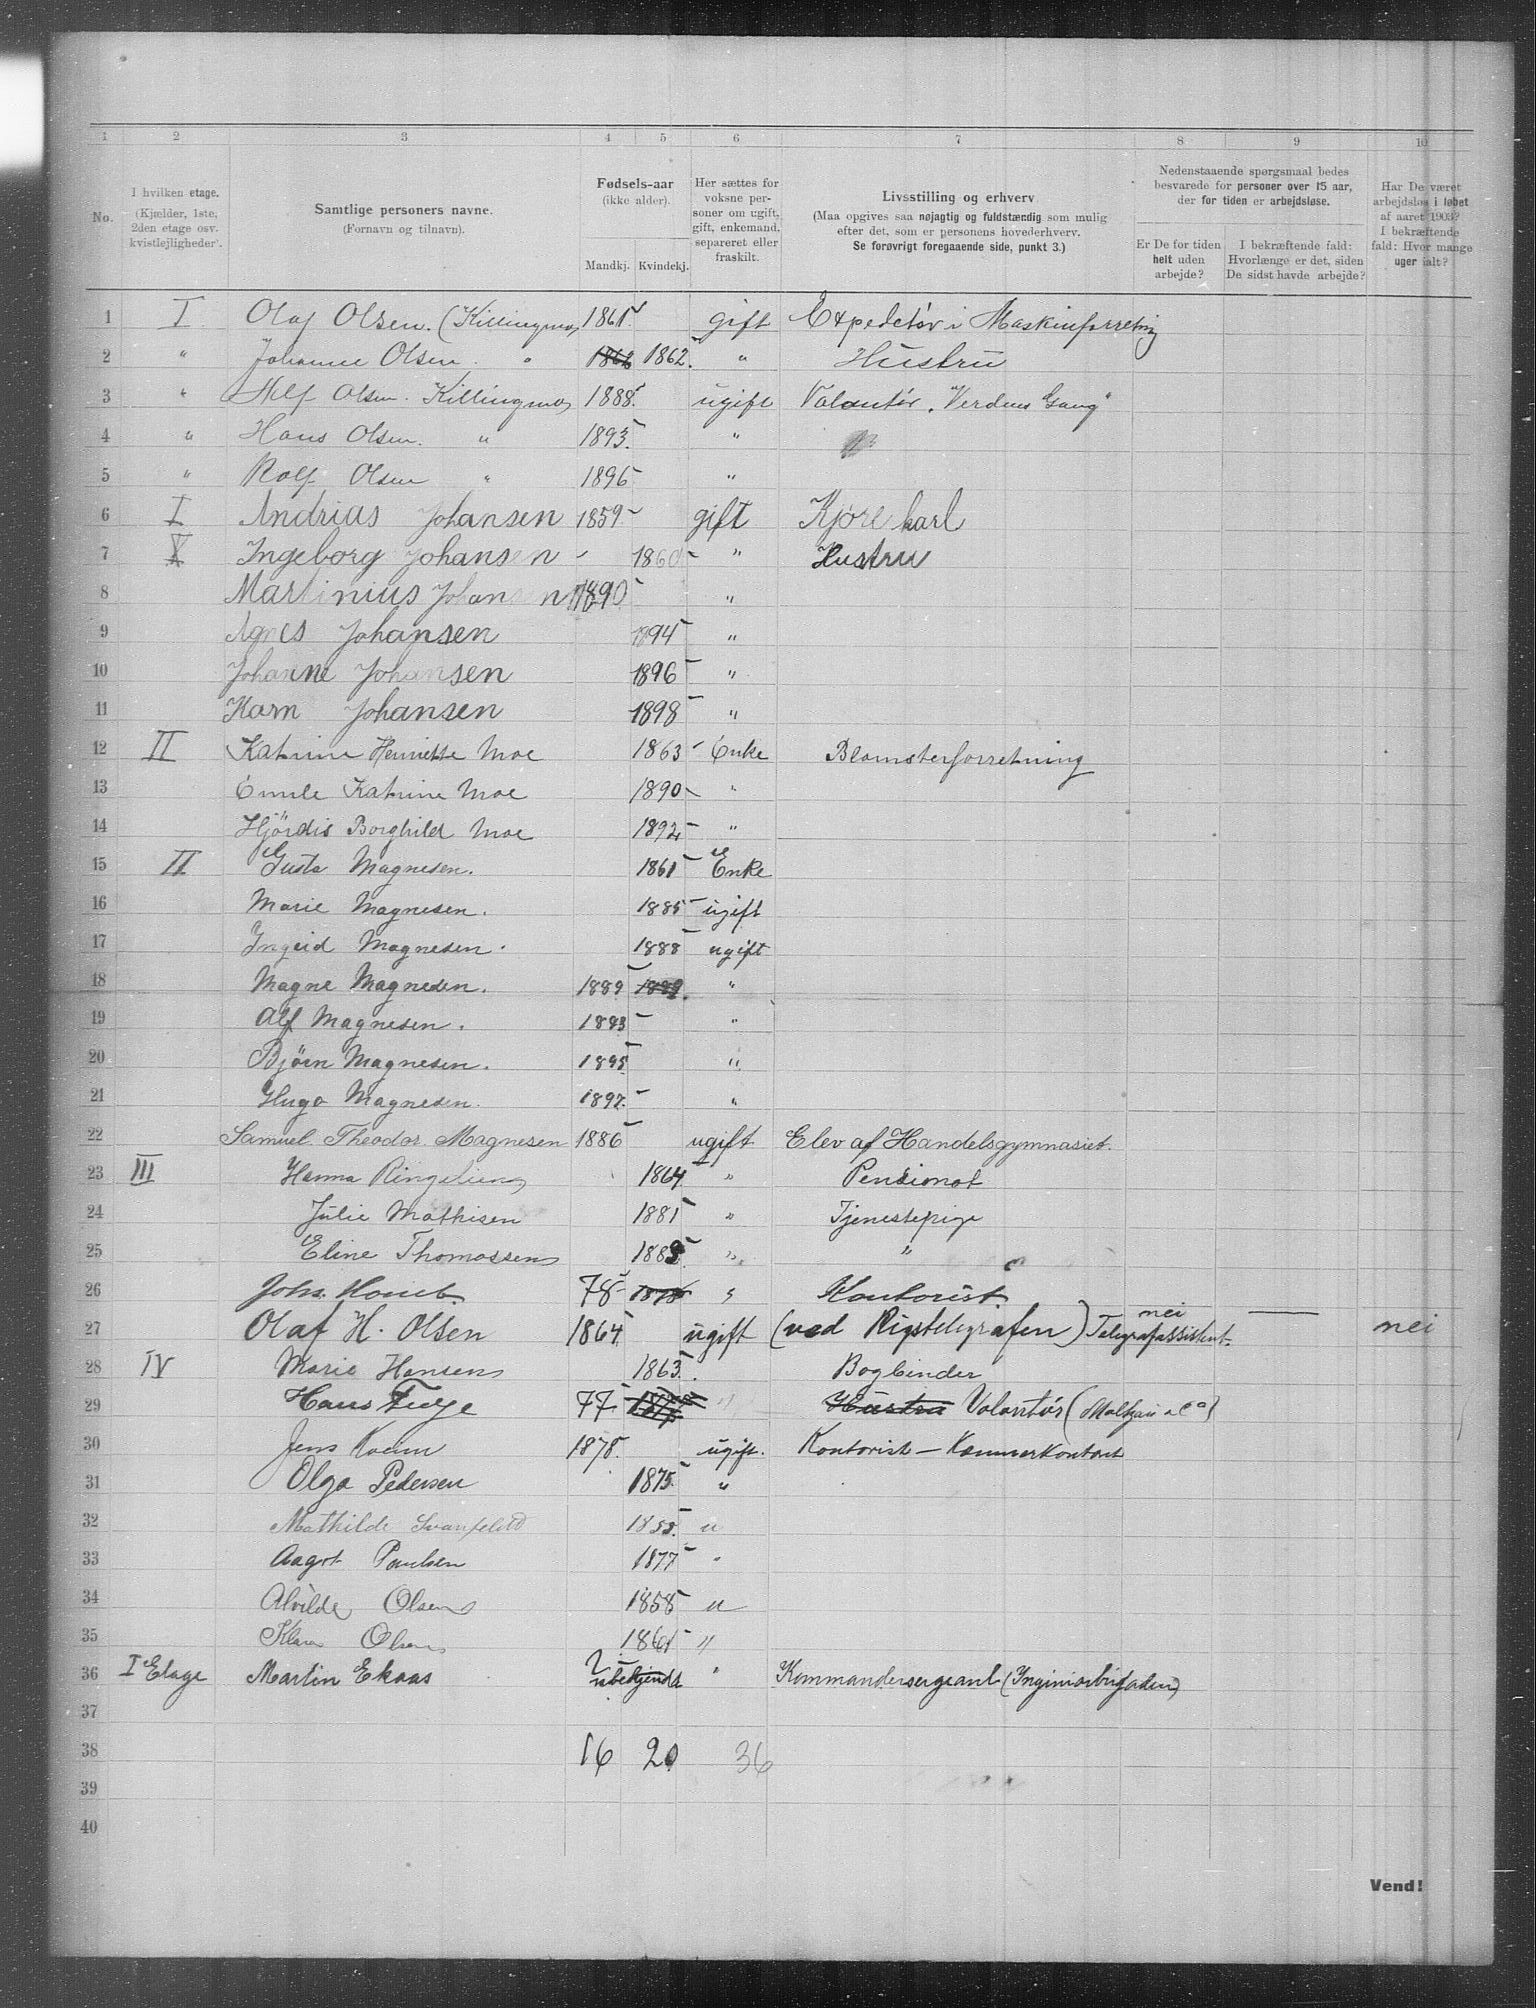 1 2 3 4 5 6 7 8 9 10
No.
I hvilken etage.
(Kjælder, 1ste,
2den etage osv.
kvistlejligheder).
Samtlige personers navne.
(Fornavn og tilnavn).
Fødsels-aar
(ikke alder).
Mandkj. Kvindekj.
Her sættes for
voksne per-
soner om ugift,
gift, enkemand,
separeret eller
fraskilt.
Livsstilling og erhverv
(Maa opgives saa nøjagtig og fuldstændig som mulig
efter det, som er personens hovederhverv.
Se forøvrigt foregaaende side, punkt 3.)
Nedenstaaende spørgsmaal bedes
besvarede for personer over 15 aar,
der for tiden er arbejdsløse.
Er De for tiden
helt uden
arbejde?
I bekræftende fald:
Hvorlænge er det, siden
De sidst havde arbejde?
Har De været
arbejdsløs i løbet
af aaret 1903?
I bekræftende
fald: Hvor mange
uger ialt?
1 I Olaf Olsen. (Killingmo) 1861 gift Expeditør i Maskinforretnig
2 " Johanne Olsen. " 1862. " Hustru
3 " Alf Olsen. Killingmo 1888. ugift Volontör "Verdens Gang"
4 " Hans Olsen. " 1893. "
5 " Rolf Olsen " 1896 "
6 I Andrias Johansen 1859 gift Kjøre karl
7 Ingeborg Johansen 1860 " Hustru
8 Martinius Johansen 1890 "
9 Agnes Johansen 1894 "
10 Johanne Johansen 1896 "
11 Karn Johansen 1898 "
12 II Katrine Henriette Moe 1863 Enke Blomsterforretning
13 Katrine Moe 1890 "
14 Hjördis Borghild Moe 1892 "
15 II Gusta Magnesen. 1861 Enke
16 Marie Magnesen. 1885 ugift
17 Ingrid Magnesen. 1888 ugift
18 Magne Magnesen. 1889 "
19 Alf Magnesen. 1893 "
20 Bjørn Magnesen. 1895 "
21 Hugo Magnesen. 1897. "
22 Samuel Theodor Magnesen 1886 ugift Elev af Handelsgymnasiet.
23 III Hanna 1864 " Pensionat
24 Julie Mathisen 1881 " Tjenestepige
25 Eline Thomassen 188 " "
26 Johs. 78 " Kontorist
27 Olaf H. Olsen 1864 ugift (ved Rigstelegrafen) Telegrafassistent. nei — nei
28 IV Marie Hansen 1863. Bogbinder
29 Hans 77 " Hustru Volontör (
30 Jens 1878. ugift. Kontorist —
31 Olga Pedersen 1875. "
32 Mathilde "
33 Aagot Paulsen 1877 "
34 Alvilde Olsen 1858 "
35 Klara Olsen 1861 "
36 I Etage Martin Ekaas ubekjendt " Kommandersergeant (Inginiørbrigaden)
37
38 16 20 36
39
40
Vend!